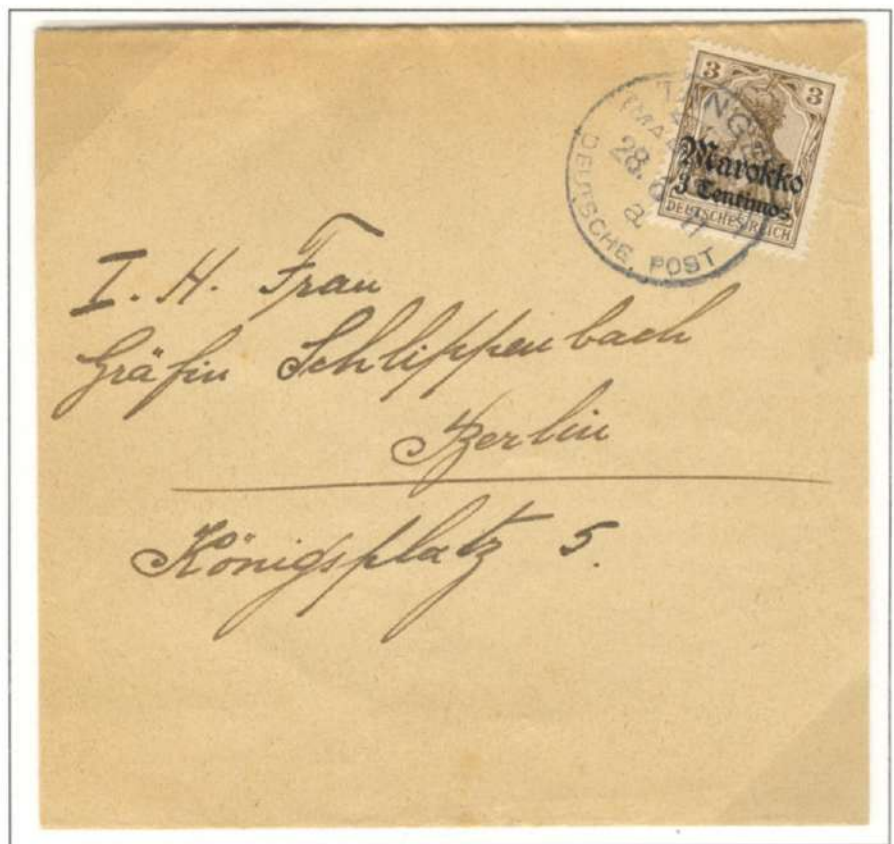 3 3
Marokko
3 Centimos
DEUTSCHES REICH
28.
a
DEUTSCHE POST
I. H. Frau
Gräfin Schlippenbach
Berlin
Königsplatz 5.